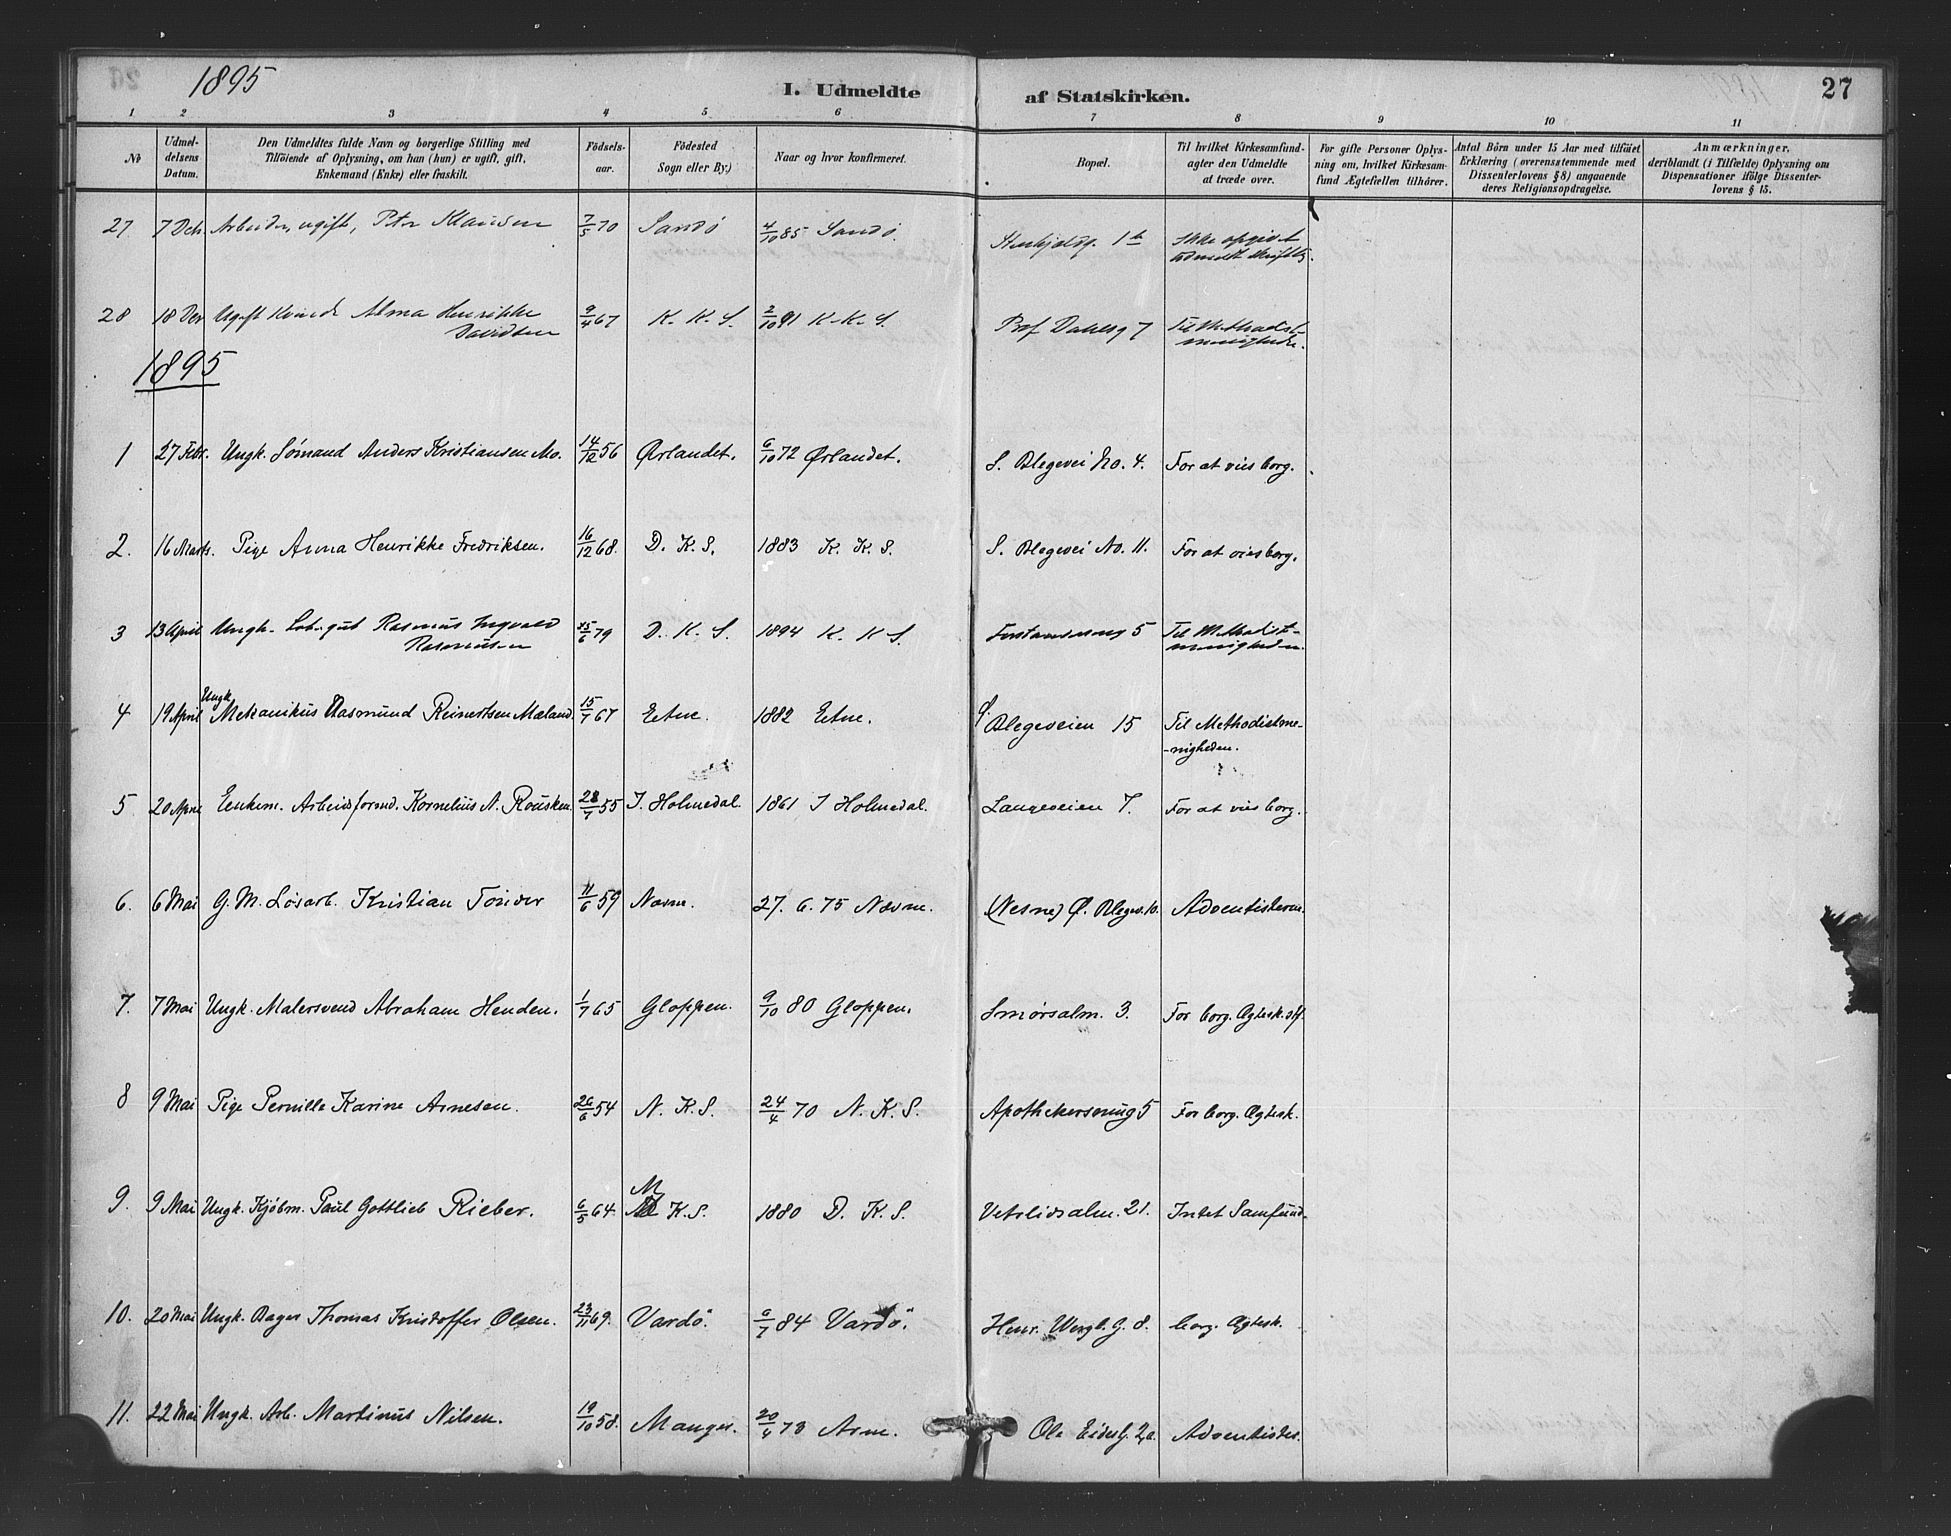 1895
I. Udmeldte af Statskirken.
27
1 2 3 4 5 6 7 8 9 10 11
No
Udmel-
delsens
Datum.
Den Udmeldtes fulde Navn og borgerlige Stilling med
Tilföiende af Oplysning, om han (hun) er ugift, gift,
Enkemand (Enke) eller fraskilt.
Födsels-
aar.
Födested
Sogn eller By.)
Naar og hvor konfirmeret.
Bopæl.
Til hvilket Kirkesamfund-
agter den Udmeldte
at træde over.
For gifte Personer Oplys-
ning om, hvilket Kirkesam-
fund Ægtefællen tilhörer.
Antal Börn under 15 Aar med tilföiet
Erklæring (overensstemmende med
Dissenterlovens § 8) angaaende
deres Religionsopdragelse.
Anmærkninger,
deriblandt (i Tilfælde) Oplysning om
Dispensationer ifölge Dissenter-
lovens § 15.
27. 7 Dcb. Arbeider, ugift, Peter Klausen 7/5 70 Sandö 4/10 85 Sandö. 1 b Ikke opgivet
udmeldt skriftlig.
28 18 Dec Ugift Kvinde Alma Henrikke
Davidsen 9/4 67 K. K. S. 2/10 91 K. K. S. Prof Dahlsg 7 Til Methodist-
menigheden.
1895
1 27 Febr. Ungk. Sømand Anders Kristiansen Mo. 14/12 56 Ørlandet. 6/10 72 Ørlandet. S. Blegevei No. 4. For at vies borg.
2. 16 Marts. Pige Anna Henrikke Fredriksen. 16/12 68. D. K. S. 1883 K. K. S. S. Blegevei No. 11. For at vies borg.
3 13 April Ungk. Rasmus Ingvald
Rasmussen 15/6 79 D. K. S. 1894 K. K S. Forstandersmug 5 Til Methodist-
menigheden.
4 19 April Ungk. Mekanikus Aasmund Reinertsen Mæland. 15/7 67 Eetne. 1882 Eetne. S. Blegeveien 15 Til Methodistme-
-nigheden.
5 20 April Enkem. Arbeidsformd. Kornelius A. 28/7 55 I. Holmedal. 1861 I Holmedal. Langeveien 7. For at vies borg.
6. 6 Mai G. M. Løsarb. Kristian Tönder 11/6 59 Næsne. 27. 6. 75 Næsne. (Nesne) Ø. Blegev. 10. Adventisterne.
7. 7 Mai Ungk. Malersvend Abraham Henden. 1/7 65 Gloppen. 9/10 80 Gloppen. Smørsalm. 3. For borg. Ægtesk.
8 9 Mai Pige Pernille Karine Arnesen. 26/6 54 N. K. S. 24/4 70 N. K. S. Apothekersmug 5 For borg. Ægtesk.
9. 9 Mai Ungk. Kjöbm. Paul Gottlieb Rieber. 6/5 64. M K. S. 1880 D. K. S. Vetrlidsalm. 21. Intet Samfund.
10. 20 Mai Ungk. Bager Thomas Kristoffer Olsen. 23/11 69. Vardö. 6/7 84 Vardö. Henr. Wergl. G. 8. borg. Ægtesk.
11. 22 Mai Ungk. Arb. Martinus Nilsen. 19/10 58. Manger. 20/4 73 Arne. Ole 2a. Adventister.